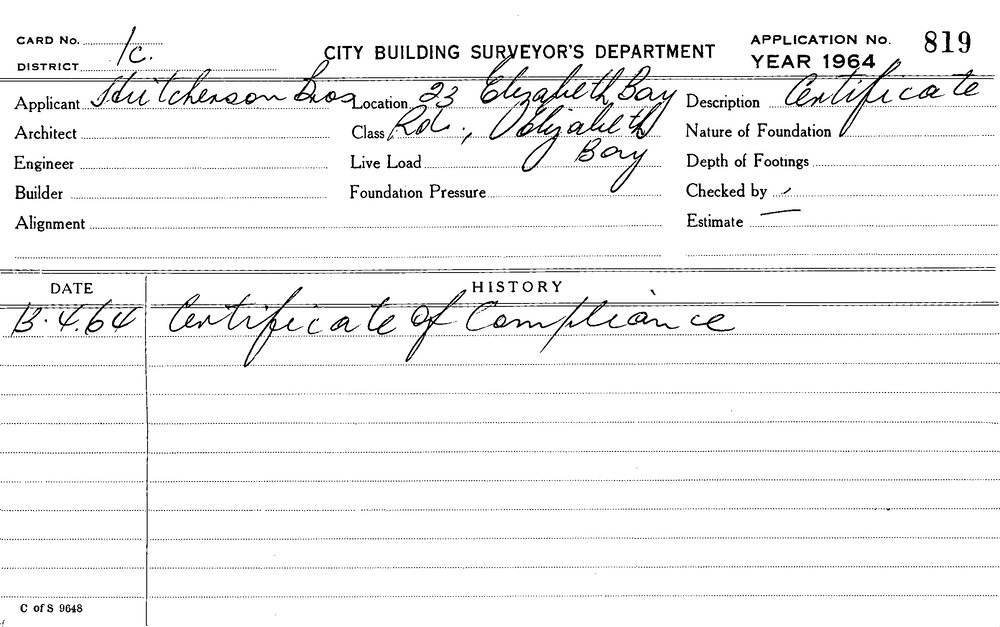 CARD No. 1c.
DISTRICT
CITY BUILDING SURVEYOR'S DEPARTMENT
APPLICATION No. 819
YEAR 1964
Applicant Hutcherson Bros Location 23 Elizabeth Bay Description Certificate
Architect Class Rd., Elizabeth Nature of Foundation
Bay
Engineer Live Load Depth of Footings
Builder Foundation Pressure Checked by
Alignment Estimate —
DATE HISTORY
13.4.64 Certificate of Compliance
C of S 9648